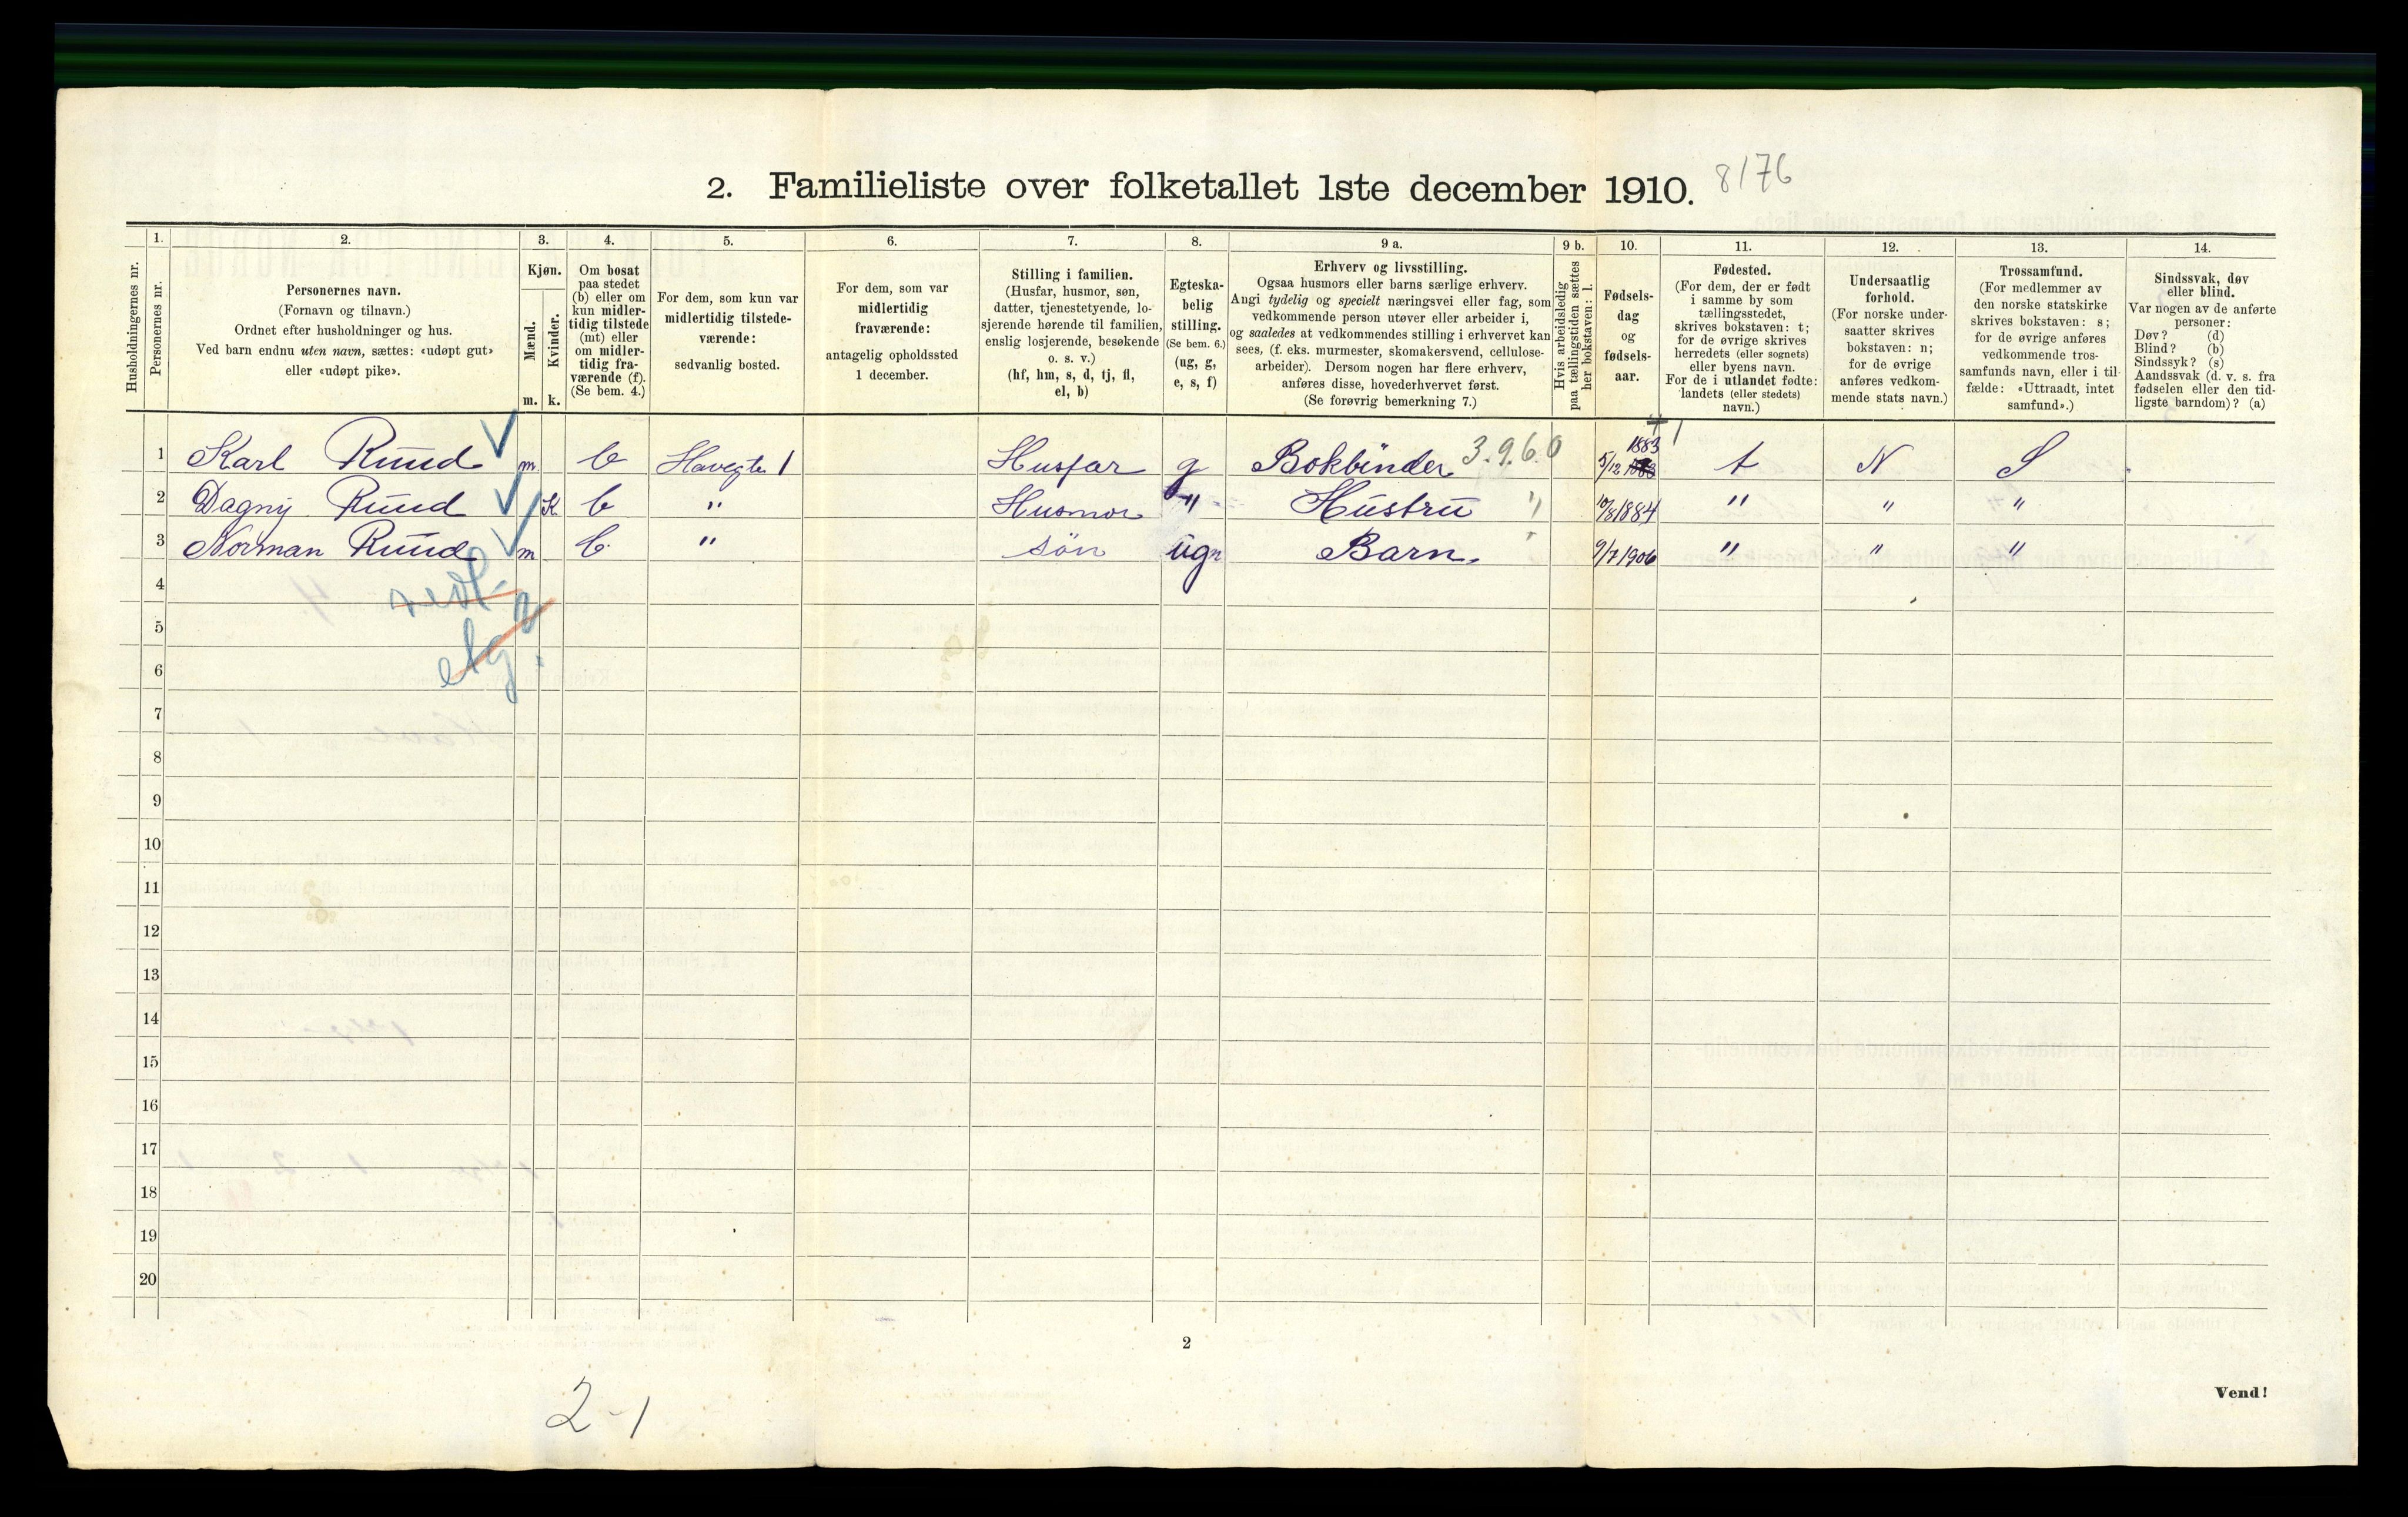 2. Familieliste over folketallet 1ste december 1910. 8176
Husholdningernes nr.
1. Personernes nr.
2. Personernes navn.
(Fornavn og tilnavn.)
Ordnet efter husholdninger og hus.
Ved barn endnu uten navn, sættes: «udøpt gut»
eller «udøpt pike».
3. Kjøn.
Mænd. m.
Kvinder. k.
4. Om bosat
paa stedet
(b) eller om
kun midler-
tidig tilstede
(mt) eller
om midler-
tidig fra-
værende (f).
(Se bem. 4.)
5. For dem, som kun var
midlertidig tilstede-
værende:
sedvanlig bosted.
6. For dem, som var
midlertidig
fraværende:
antagelig opholdssted
1 december.
7. Stilling i familien.
(Husfar, husmor, søn,
datter, tjenestetyende, lo-
sjerende hørende til familien,
enslig losjerende, besøkende
o. s. v.)
(hf, hm, s, d, tj, fl,
el, b)
8. Egteska-
belig
stilling.
(Se bem. 6.)
(ug, g,
e, s, f)
9 a. Erhverv og livsstilling.
Ogsaa husmors eller barns særlige erhverv.
Angi tydelig og specielt næringsvei eller fag, som
vedkommende person utøver eller arbeider i,
og saaledes at vedkommendes stilling i erhvervet kan
sees, (f. eks. murmester, skomakersvend, cellulose-
arbeider). Dersom nogen har flere erhverv,
anføres disse, hovederhvervet først.
(Se forøvrig bemerkning 7.)
9 b. Hvis arbeidsledig
paa tællingstiden sættes
her bokstaven: l.
10. Fødsels-
dag
og
fødsels-
aar.
11. Fødested.
(For dem, der er født
i samme by som
tællingsstedet,
skrives bokstaven: t;
for de øvrige skrives
herredets (eller sognets)
eller byens navn.
For de i utlandet fødte:
landets (eller stedets)
navn.)
12. Undersaatlig
forhold.
(For norske under-
saatter skrives
bokstaven: n;
for de øvrige
anføres vedkom-
mende stats navn.)
13. Trossamfund.
(For medlemmer av
den norske statskirke
skrives bokstaven: s;
for de øvrige anføres
vedkommende tros-
samfunds navn, eller i til-
fælde: «Uttraadt, intet
samfund».)
14. Sindssvak, døv
eller blind.
Var nogen av de anførte
personer:
Døv? (d)
Blind? (b)
Sindssyk? (s)
Aandssvak (d. v. s. fra
fødselen eller den tid-
ligste barndom)? (a)
1 Karl Ruud m b Havegten 1 Husfar g Bokbinder 3.9.6.0 5/12 1883 t N S
2 Dagny Ruud K b " Husmor " Hustru " 10/8 1884 " " "
3 Norman Ruud m b. " søn ug Barn. 9/7 1906 " " "
4
5
6
7
8
9
10
11
12
13
14
15
16
17
18
19
20
2
Vend!
2-1